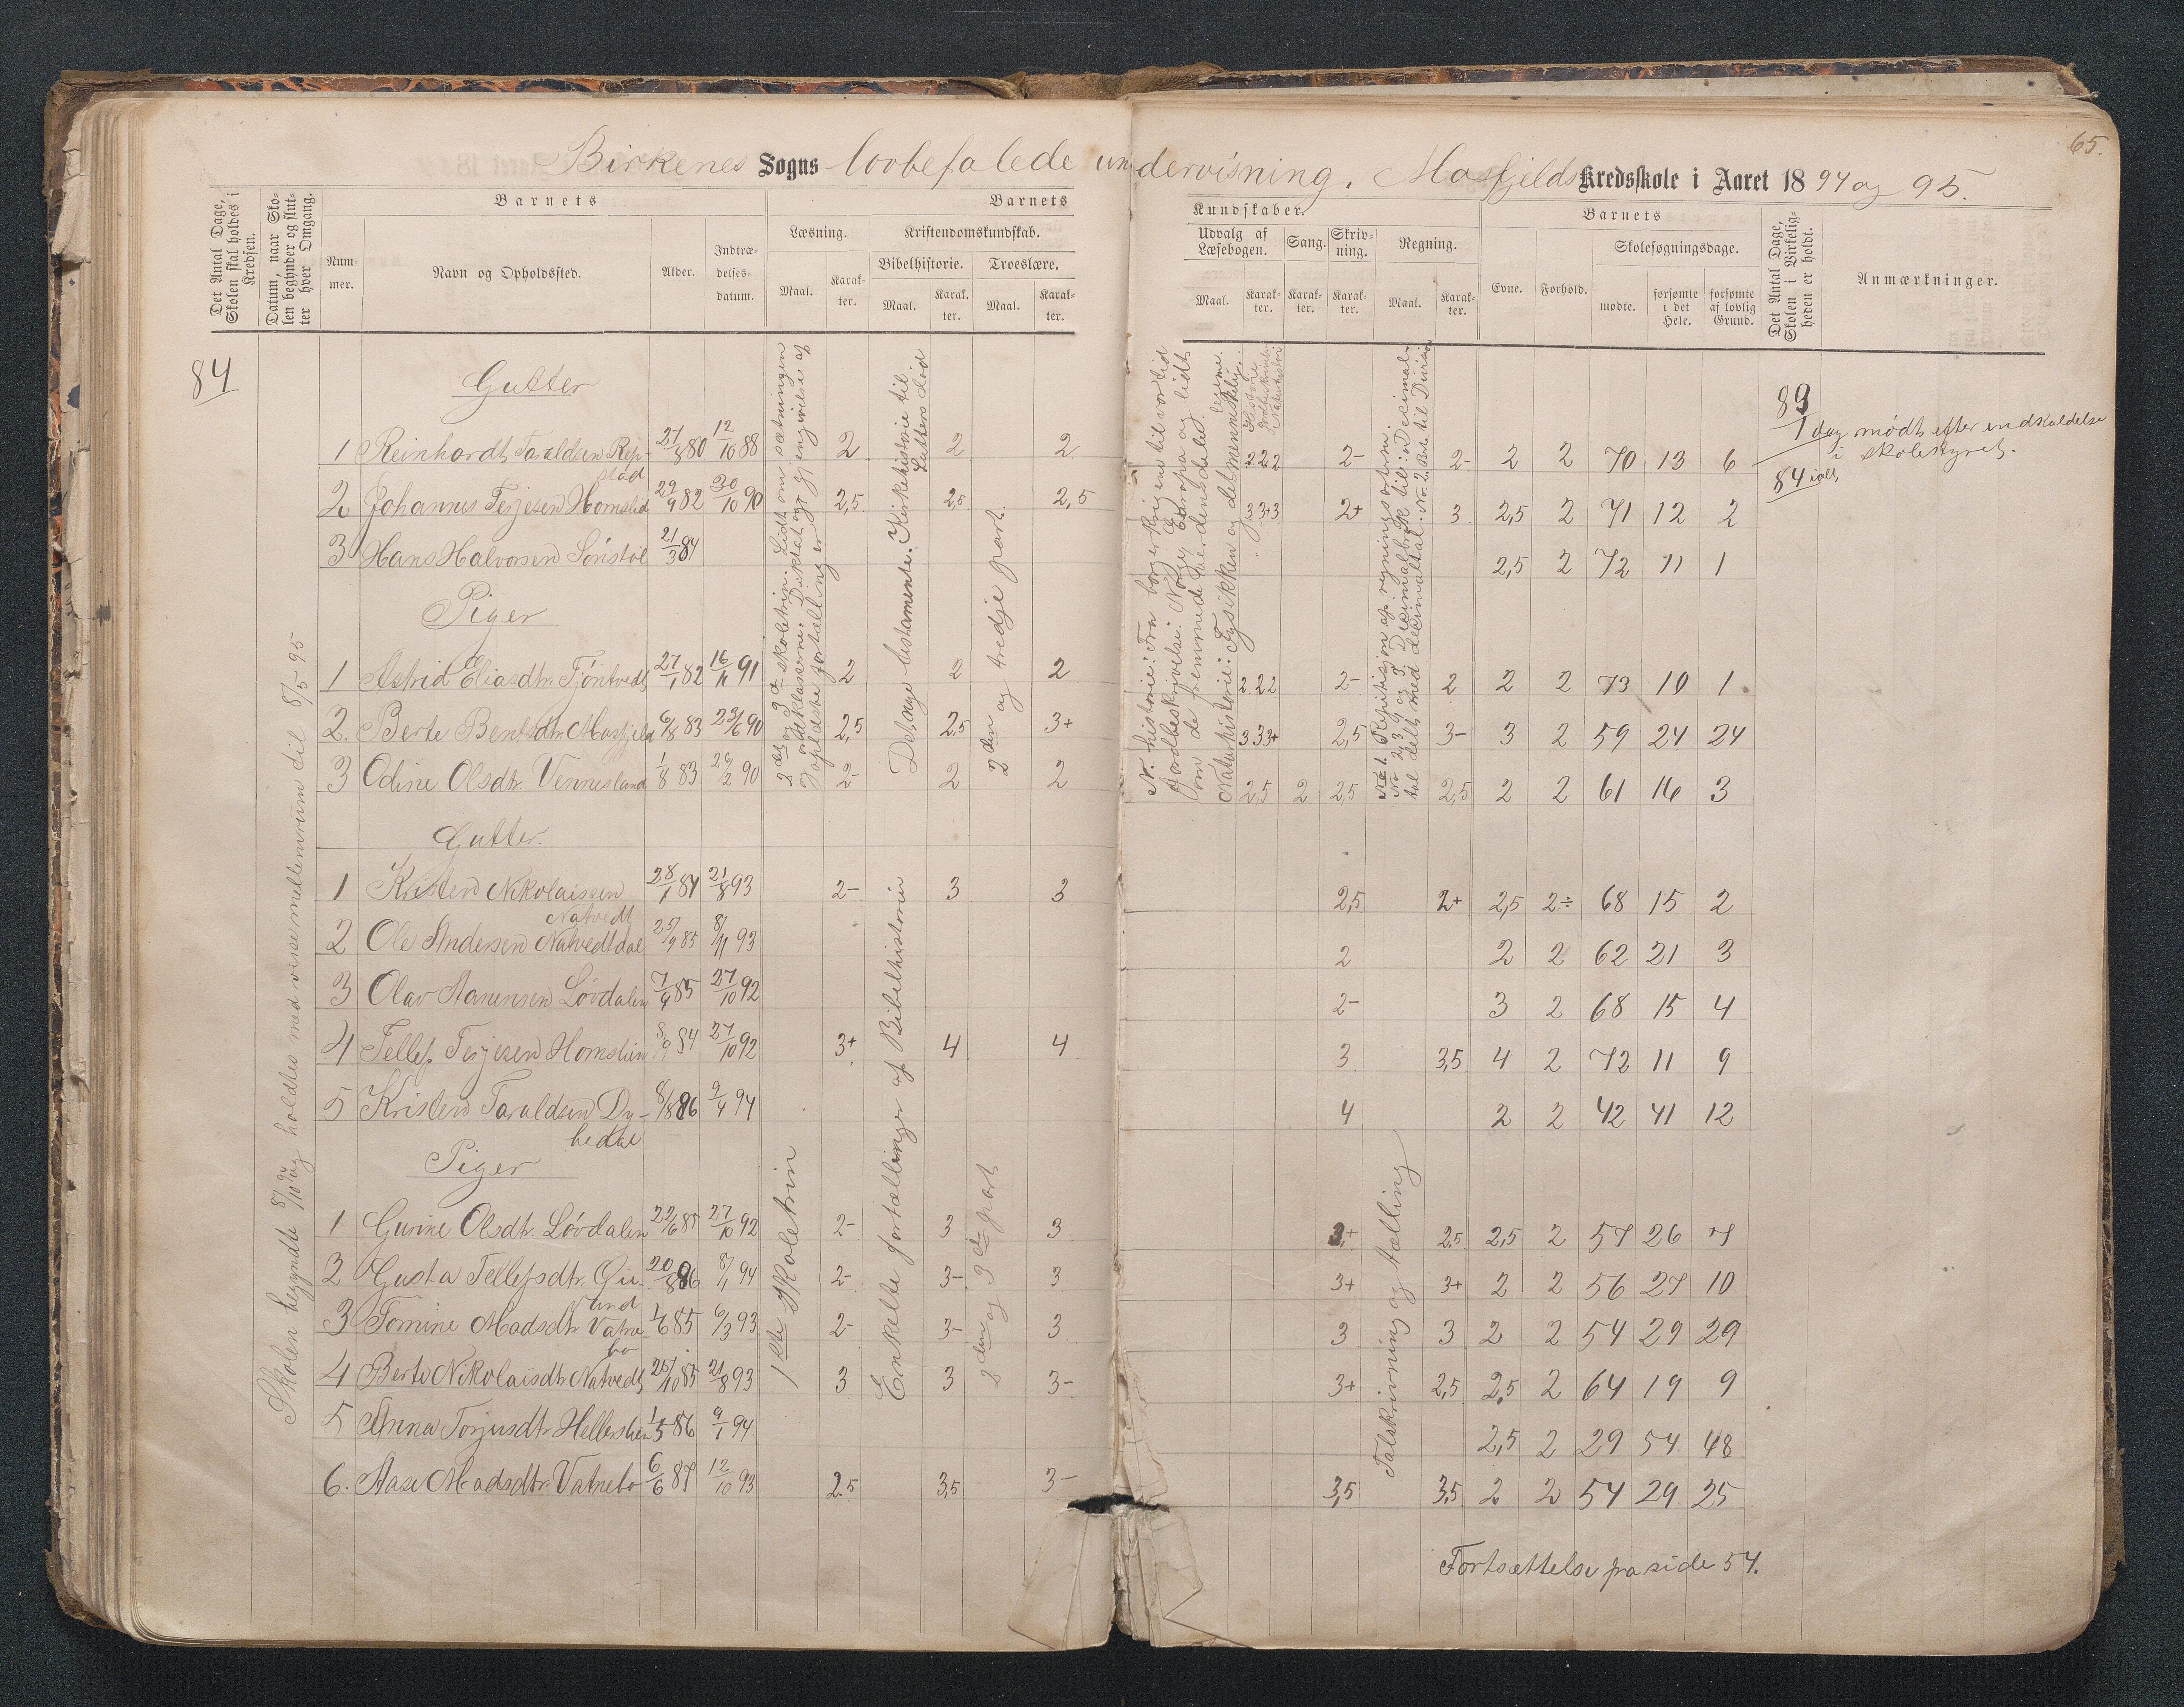 65.
Birkenes Sogns lovbefalede undervisning. Mosfjelds Kredsskole i Aaret 1894 og 95.
Det Antal Dage, Skolen skal holdes i Kredsen.
Datum, naar Skolen begynder og slutter hver Omgang.
Barnets
Nummer.
Navn og Opholdssted.
Alder.
Indtrædelsesdatum.
Barnets
Læsning.
Maal.
Karakter.
Kristendomskundskab.
Bibelhistorie.
Maal.
Karakter.
Troeslære.
Maal.
Karakter.
Kundskaber.
Udvalg af Læsebogen.
Maal.
Karakter.
Sang.
Karakter.
Skrivning.
Karakter.
Regning.
Maal.
Karakter.
Barnets
Evne.
Forhold.
Skolesøgningsdage.
mødte.
forsømte i det Hele.
forsømte af lovlig Grund.
Det Antal Dage, Skolen i Virkeligheden er holdt.
Anmærkninger.
84
Skolen begyndte 8/10 94 og holdtes med visse mellemrum til 8/5 95
Gutter
1 Reinhardt Taraldsen Repstad 27/8 80 12/10 88 2 2 2 2 2 2 2- 2- 2 2 70 13 6
2 Johannes Terjesen Homslid 22/9 82 30/10 90 2,5 2,5 2,5 3 3+ 3 2+ 3 2,5 2 71 12 2
3 Hans Halvorsen Sónstöl 21/3 84 2,5 2 72 11 1
Piger
1 Astrid Eliasdtr. Tjöntvedt 27/1 82 16/11 91 2 2 2 2 2 2 2- 2 2 2 73 10 1
2. Berte Bentsdtr. Mosfjeld 6/8 83 23/6 90 2,5 2,5 3+ 3 3 3+ 2,5 3- 3 2 59 24 24
3 Odine Olsdtr. Vennesland 1/8 83 29/2 90 2- 2 2 2,5 2 2,5 2,5 2 2 61 16 3
2det og 3die skoletrin. Lidt om sætningen
Det nye testamente. Kirkehistorie til Luthers död
2den og tredje part.
N. historie: Fra borgerkrigene til vor tid
Jordbeskrivelse: Norge, Europa og lidt om de fremmede verdensdele.
Naturhistorie: Fysikken og det menneskelige legeme.
No 1. Repitisjon af regningsarterne.
89
1 dag mødt efter indkaldelse i skolestyret.
84 ialt
Gutter.
1 Kristen Nikolaissen Natvedt 28/1 84 21/8 93 2- 3 3 2,5 2+ 2,5 2÷ 68 15 2
2 Ole Andersen Natvedtdal 25/9 85 8/11 93 2 2 2 62 21 3
3 Olav Aanensen Lövdalen 7/9 85 27/10 92 2- 3 2 68 15 4
4 Tellef Terjesen Homslid 8/9 84 27/10 92 3+ 4 4 3 3,5 4 2 72 11 9
5 Kristen Taraldsen Dybedal 8/8 86 2/4 94 4 2 2 42 41 12
Piger
1 Gurine Olsdtr. Lövdalen 22/6 85 27/10 92 2- 3 3 3+ 2,5 2,5 2 57 26 7
2 Gusta Tellefsdtr. 20/8 86 8/1 94 2- 3- 3 3+ 3+ 2 2 56 27 10
3 Tomine Madsdtr. Vatnebo 1/6 85 6/3 93 2- 3- 3 3 3 2 2 54 29 29
4 Berte Nikolaisdtr. Natvedt 25/10 85 21/8 93 3 3 3- 3+ 2,5 2,5 2 64 19 9
5 Anna Torjusdtr. 1/5 86 9/1 94 2,5 2 29 54 48
6. Aase Madsdtr. Vatnebo 6/6 87 12/10 93 2,5 3,5 3- 3,5 3,5 2 2 54 29 25
1ste skoletrin
Enkelte fortællinger af Bibelhistorien
2den og 3die part
Talskrivning og tælling
Fortsættelse på side 54.